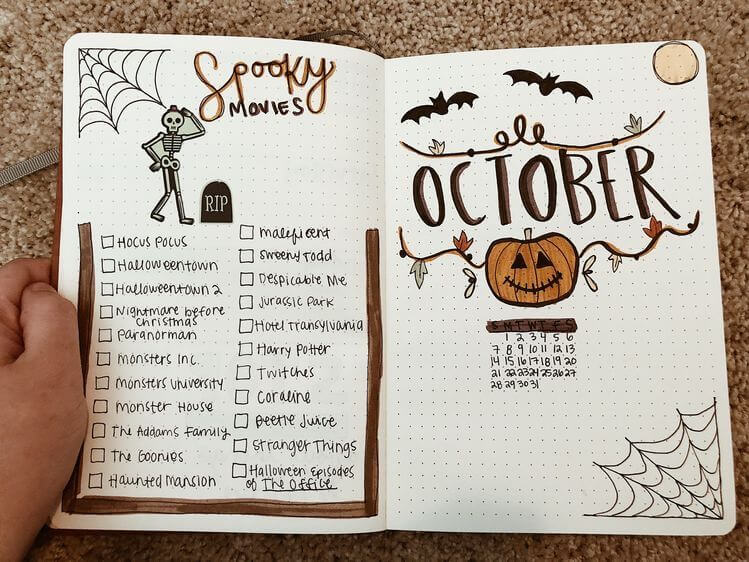 Spooky
MOVIES
RIP
HOCUS POCUS
Halloweentown
Halloweentown 2
Nightmare before
christmas
Paranorman
Monsters Inc.
Monsters University
Monster House
The Addams Family
The Goonies
Haunted Mansion
maleficent
Sweeny Todd
Despicable Me
Jurassic Park
Hotel Transylvania
Harry Potter
Twitches
Coraline
Beetle Juice
Stranger Things
Halloween Episodes
of The Office
OCTOBER
S M T W T F S
1 2 3 4 5 6
7 8 9 10 11 12 13
14 15 16 17 18 19 20
21 22 23 24 25 26 27
28 29 30 31